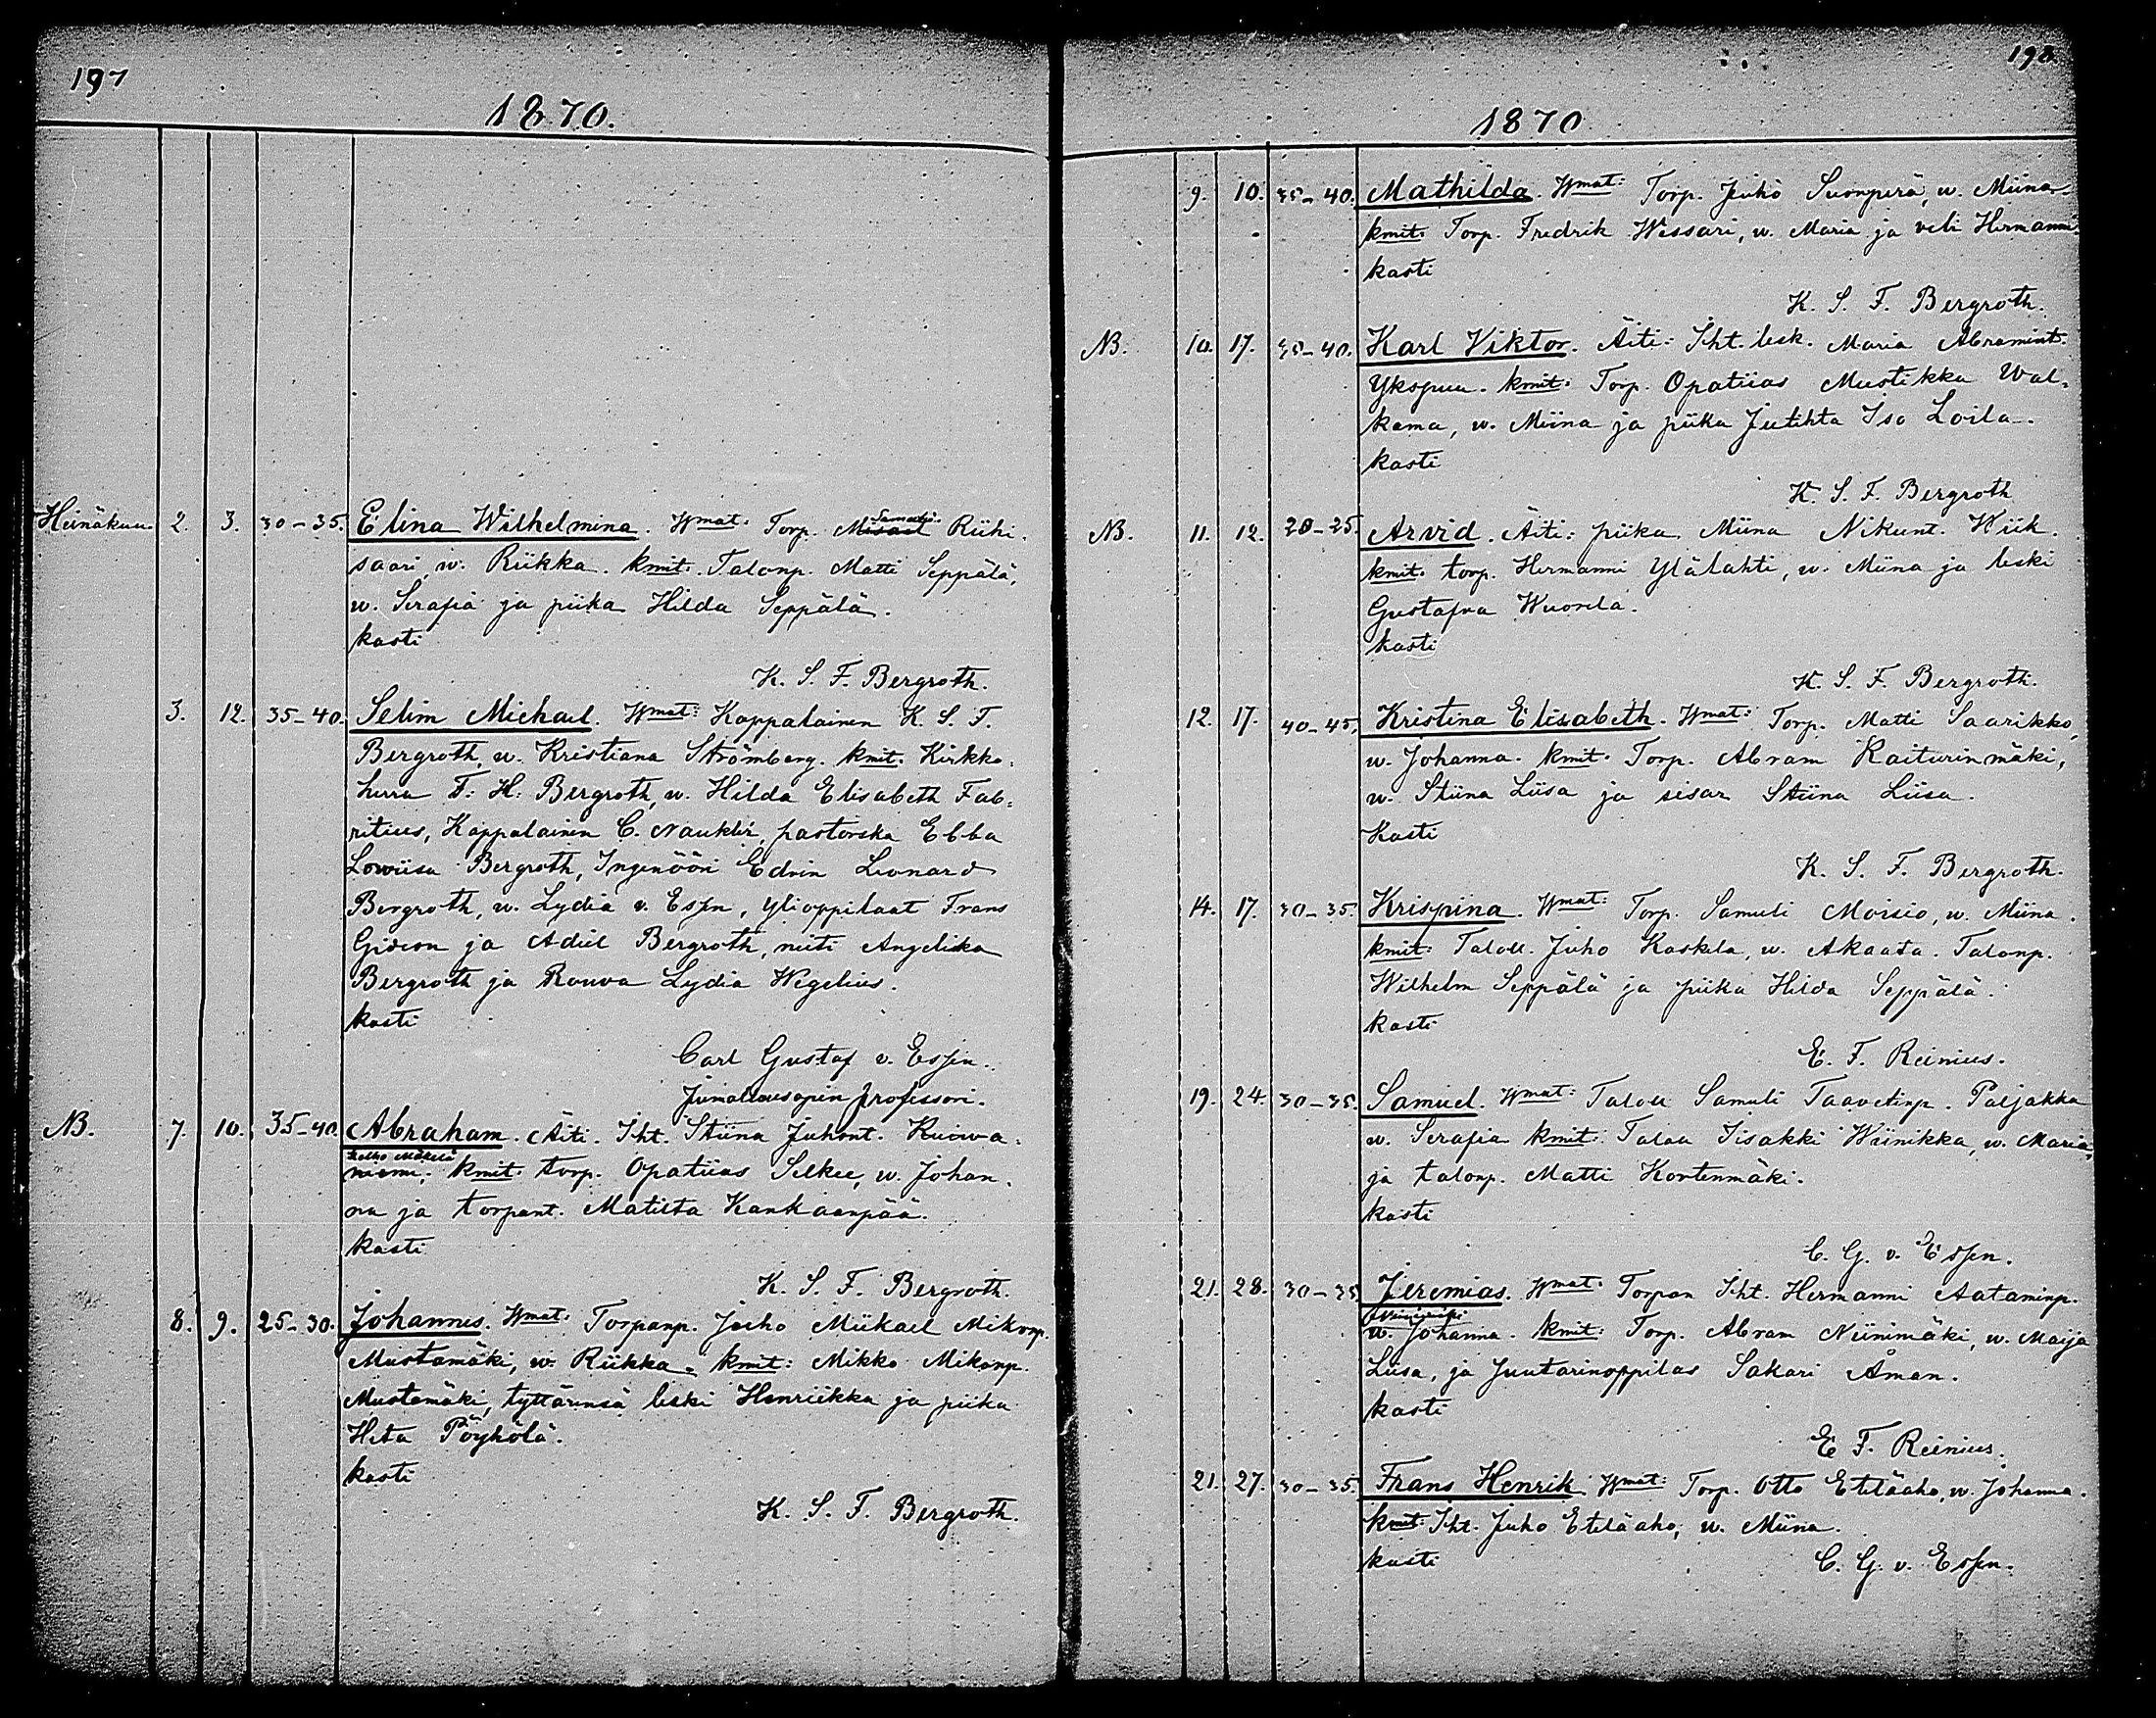 197
1870.
Heinäkuu. 2. 3. 30-35. Elina Wilhelmina. Wmat: Torp. Misael Riihi-
saari, w. Riikka. kmit: Talonp. Matti Seppälä,
w. Serafia ja piika Hilda Seppälä.
kasti
K. S. F. Bergroth.
3. 12. 35-40. Selim Michael. Wmat: Kappalainen K. S. F.
Bergroth, w. Kristiana Strömberg. kmit: Kirkko-
herra F. H. Bergroth, w. Hilda Elisabeth Fab-
ritius, Kappalainen C. Naukler, pastorska Ebba
Lowiisa Bergroth, Ingenööri Edvin Leonard
Bergroth, w. Lydia v. Essen, ylioppilaat Frans
Gideon ja Adiel Bergroth, neiti Angelika
Bergroth ja Rouva Lydia Wegelius.
kasti
Carl Gustaf v. Essen.
Jumaluusopin professori.
NB. 7. 10. 35-40. Abraham. Äiti. Iht. Stiina Juhont. Kuiwa-
Kelho Mäkelä
niemi. kmit: torp. Opatiias Selkee, w. Johan-
na ja torpant. Matilta Kankaanpää.
kasti
K. S. F. Bergroth.
8. 9. 25-30. Johannes. Wmat: Torpanp. Juho Miikael Mikonp.
Mustamäki, w. Riikka. kmit: Mikko Mikonp.
Mustamäki, tyttärensä leski Henriikka ja piika
Heta Pöyhölä.
kasti
K. S. F. Bergroth.
198
1870
9. 10. 35-40. Mathilda. Wmat: Torp. Juho Suonperä, w. Miina.
kmit: Torp. Fredrik Wessari, w. Maria ja veli Hermanni.
kasti
K. S. F. Bergroth.
NB. 10. 17. 35-40. Karl Viktor. Äiti: Iht. lesk. Maria Abramint.
Ykspuu. kmit: Torp. Opatiias Mustikka Wal-
kama, w. Miina ja piika Jutihta Iso Loila.
kasti
K. S. F. Bergroth
NB. 11. 12. 20-25. Arvid. Äiti: piika Miina Nikunt. Wiik.
kmit: torp. Hermanni Ylälahti, w. Miina ja leski
Gustafva Wuorela.
kasti
K. S. F. Bergroth.
12. 17. 40-45. Kristina Elisabeth. Wmat: Torp. Matti Saarikko,
w. Johanna. kmit: Torp. Abram Raiturinmäki,
w. Stiina Liisa ja sisar Stiina Liisa.
Kasti
K. S. F. Bergroth.
14. 17. 30-35. Krispina. Wmat: Torp. Samuli Moisio, w. Miina.
kmit: Taloll. Juho Kaskela, w. Akaata. Talonp.
Wilhelm Seppälä ja piika Hilda Seppälä.
kasti
E. F. Reinius.
19. 24. 30-35. Samuel. Wmat: Taloll Samuli Taavetinp. Paljakka
w. Serafia kmit: Taloll Iisakki Wiinikka, w. Maria,
ja talonp. Matti Kortenmäki.
kasti
C. G. v. Essen.
21. 28. 30-35. Jeremias. Wmat: Torpan Iht. Hermanni Aataminp.
w. Johanna. kmit: Torp. Abram Niinimäki, w. Maija
Liisa, ja Juutarinoppilas Sakari Åman.
kasti
E F. Reinius.
21. 27. 30-35. Frans Henrik. Wmat: Torp. Otto Eteläaho, w. Johanna.
kmit: Iht. Juho Eteläaho, w. Miina.
kasti C. G. v. Essen.